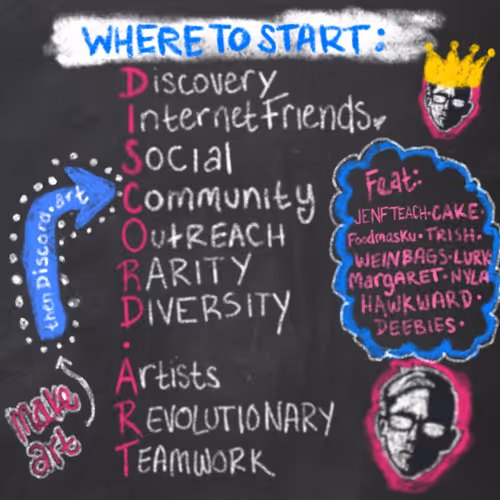 WHERE TO START:
Discovery
InternetFriends
Social
Community
OutREACH
RARITY
DIVERSITY
.
Artists
REVOLUTIONARY
TEAMWORK
then Discord.art
Make
art
Feat:
JENFTEACH·CAKE·
Foodmasku·TRISH·
WEINBAGS·LURK
Margaret·NYLA
HAWKWARD·
DEEBIES·